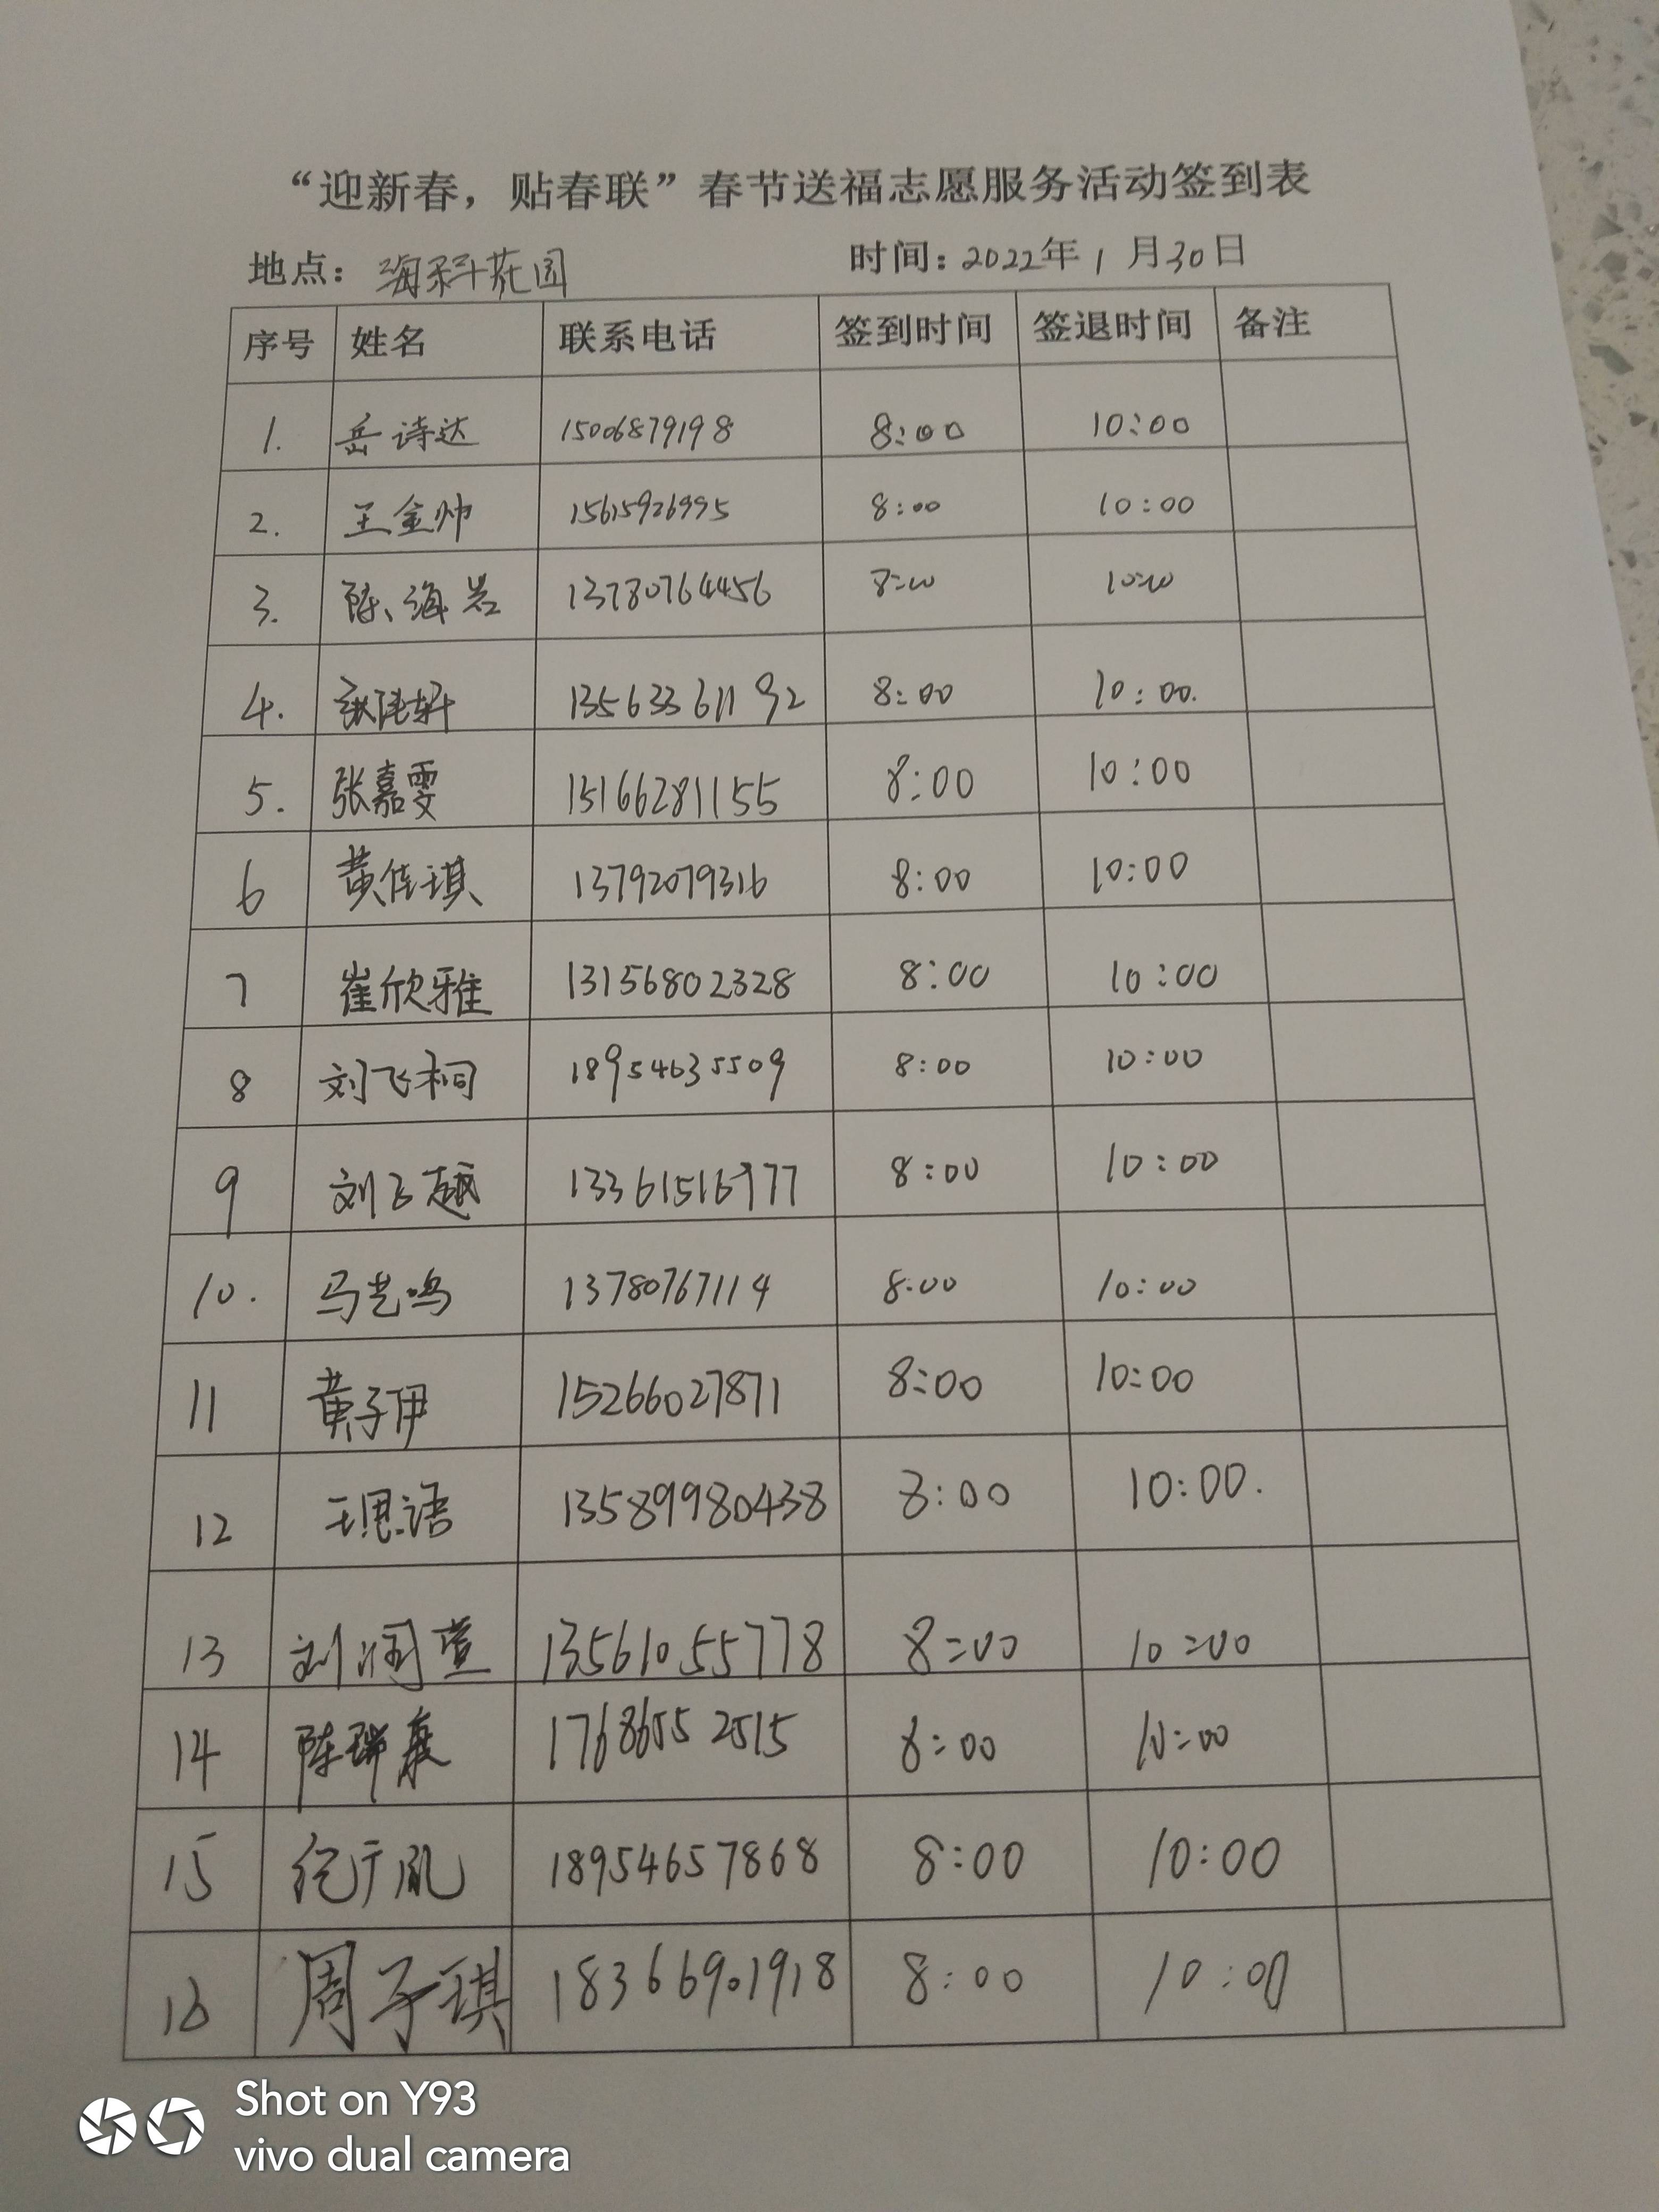 “迎新春，贴春联”春节送福志愿服务活动签到表
地点：海科花园 时间：2022年1月30日
序号 姓名 联系电话 签到时间 签退时间 备注
1. 岳诗达 15006879198 8:00 10:00
2. 王金帅 15615926995 8:00 10:00
3. 陈海岩 13780764456 8:00 10:00
4. 13563361192 8:00 10:00.
5. 张嘉雯 15166281155 8:00 10:00
6 黄佳琪 13792079316 8:00 10:00
7 崔欣雅 13156802328 8:00 10:00
8 刘飞桐 18954635509 8:00 10:00
9 刘飞越 13361516977 8:00 10:00
10. 马艺鸣 13780767114 8:00 10:00
11 黄子伊 15266027871 8:00 10:00
12 王思语 13589980438 8:00 10:00.
13 刘润萱 13561055778 8:00 10:00
14 陈瑞 17686552515 8:00 10:00
15 纪广凯 18954657868 8:00 10:00
16 周子琪 18366901918 8:00 10:00
Shot on Y93
vivo dual camera